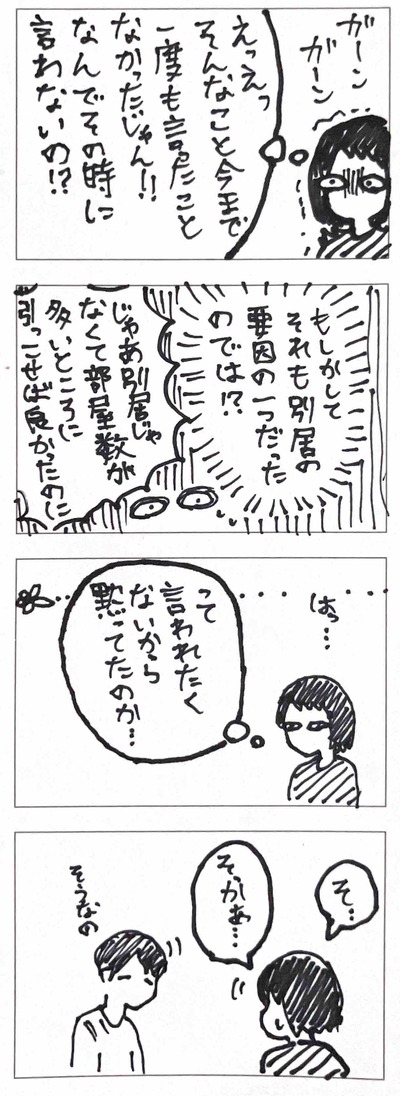 ガーン
ガーン
えっえっ
そんなこと今まで
一度も言ったこと
なかったじゃん!!
なんでその時に
言わないの!?
もしかして
それも別居の
要因の一つだった
のでは!?
じゃあ別居じゃ
なくて部屋数が
多いところに
引っこせば良かったのに
はっ…
って
言われたく
ないから
黙ってたのか…
そ…
そかあ…
そうなの